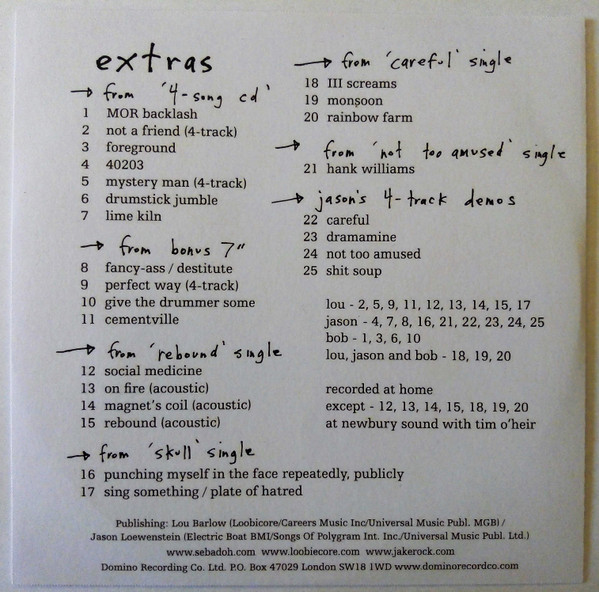 extras
→ from '4-song cd'
1 MOR backlash
2 not a friend (4-track)
3 foreground
4 40203
5 mystery man (4-track)
6 drumstick jumble
7 lime kiln
→ from bonus 7"
8 fancy-ass / destitute
9 perfect way (4-track)
10 give the drummer some
11 cementville
→ from 'rebound' single
12 social medicine
13 on fire (acoustic)
14 magnet's coil (acoustic)
15 rebound (acoustic)
→ from 'skull' single
16 punching myself in the face repeatedly, publicly
17 sing something / plate of hatred
→ from 'careful' single
18 III screams
19 monsoon
20 rainbow farm
→ from 'not too amused' single
21 hank williams
→ jason's 4-track demos
22 careful
23 dramamine
24 not too amused
25 shit soup
lou - 2, 5, 9, 11, 12, 13, 14, 15, 17
jason - 4, 7, 8, 16, 21, 22, 23, 24, 25
bob - 1, 3, 6, 10
lou, jason and bob - 18, 19, 20
recorded at home
except - 12, 13, 14, 15, 18, 19, 20
at newbury sound with tim o'heir
Publishing: Lou Barlow (Loobicore/Careers Music Inc/Universal Music Publ. MGB) /
Jason Loewenstein (Electric Boat BMI/Songs Of Polygram Int. Inc./Universal Music Publ. Ltd.)
www.sebadoh.com www.loobiecore.com www.jakerock.com
Domino Recording Co. Ltd. P.O. Box 47029 London SW18 1WD www.dominorecordco.com